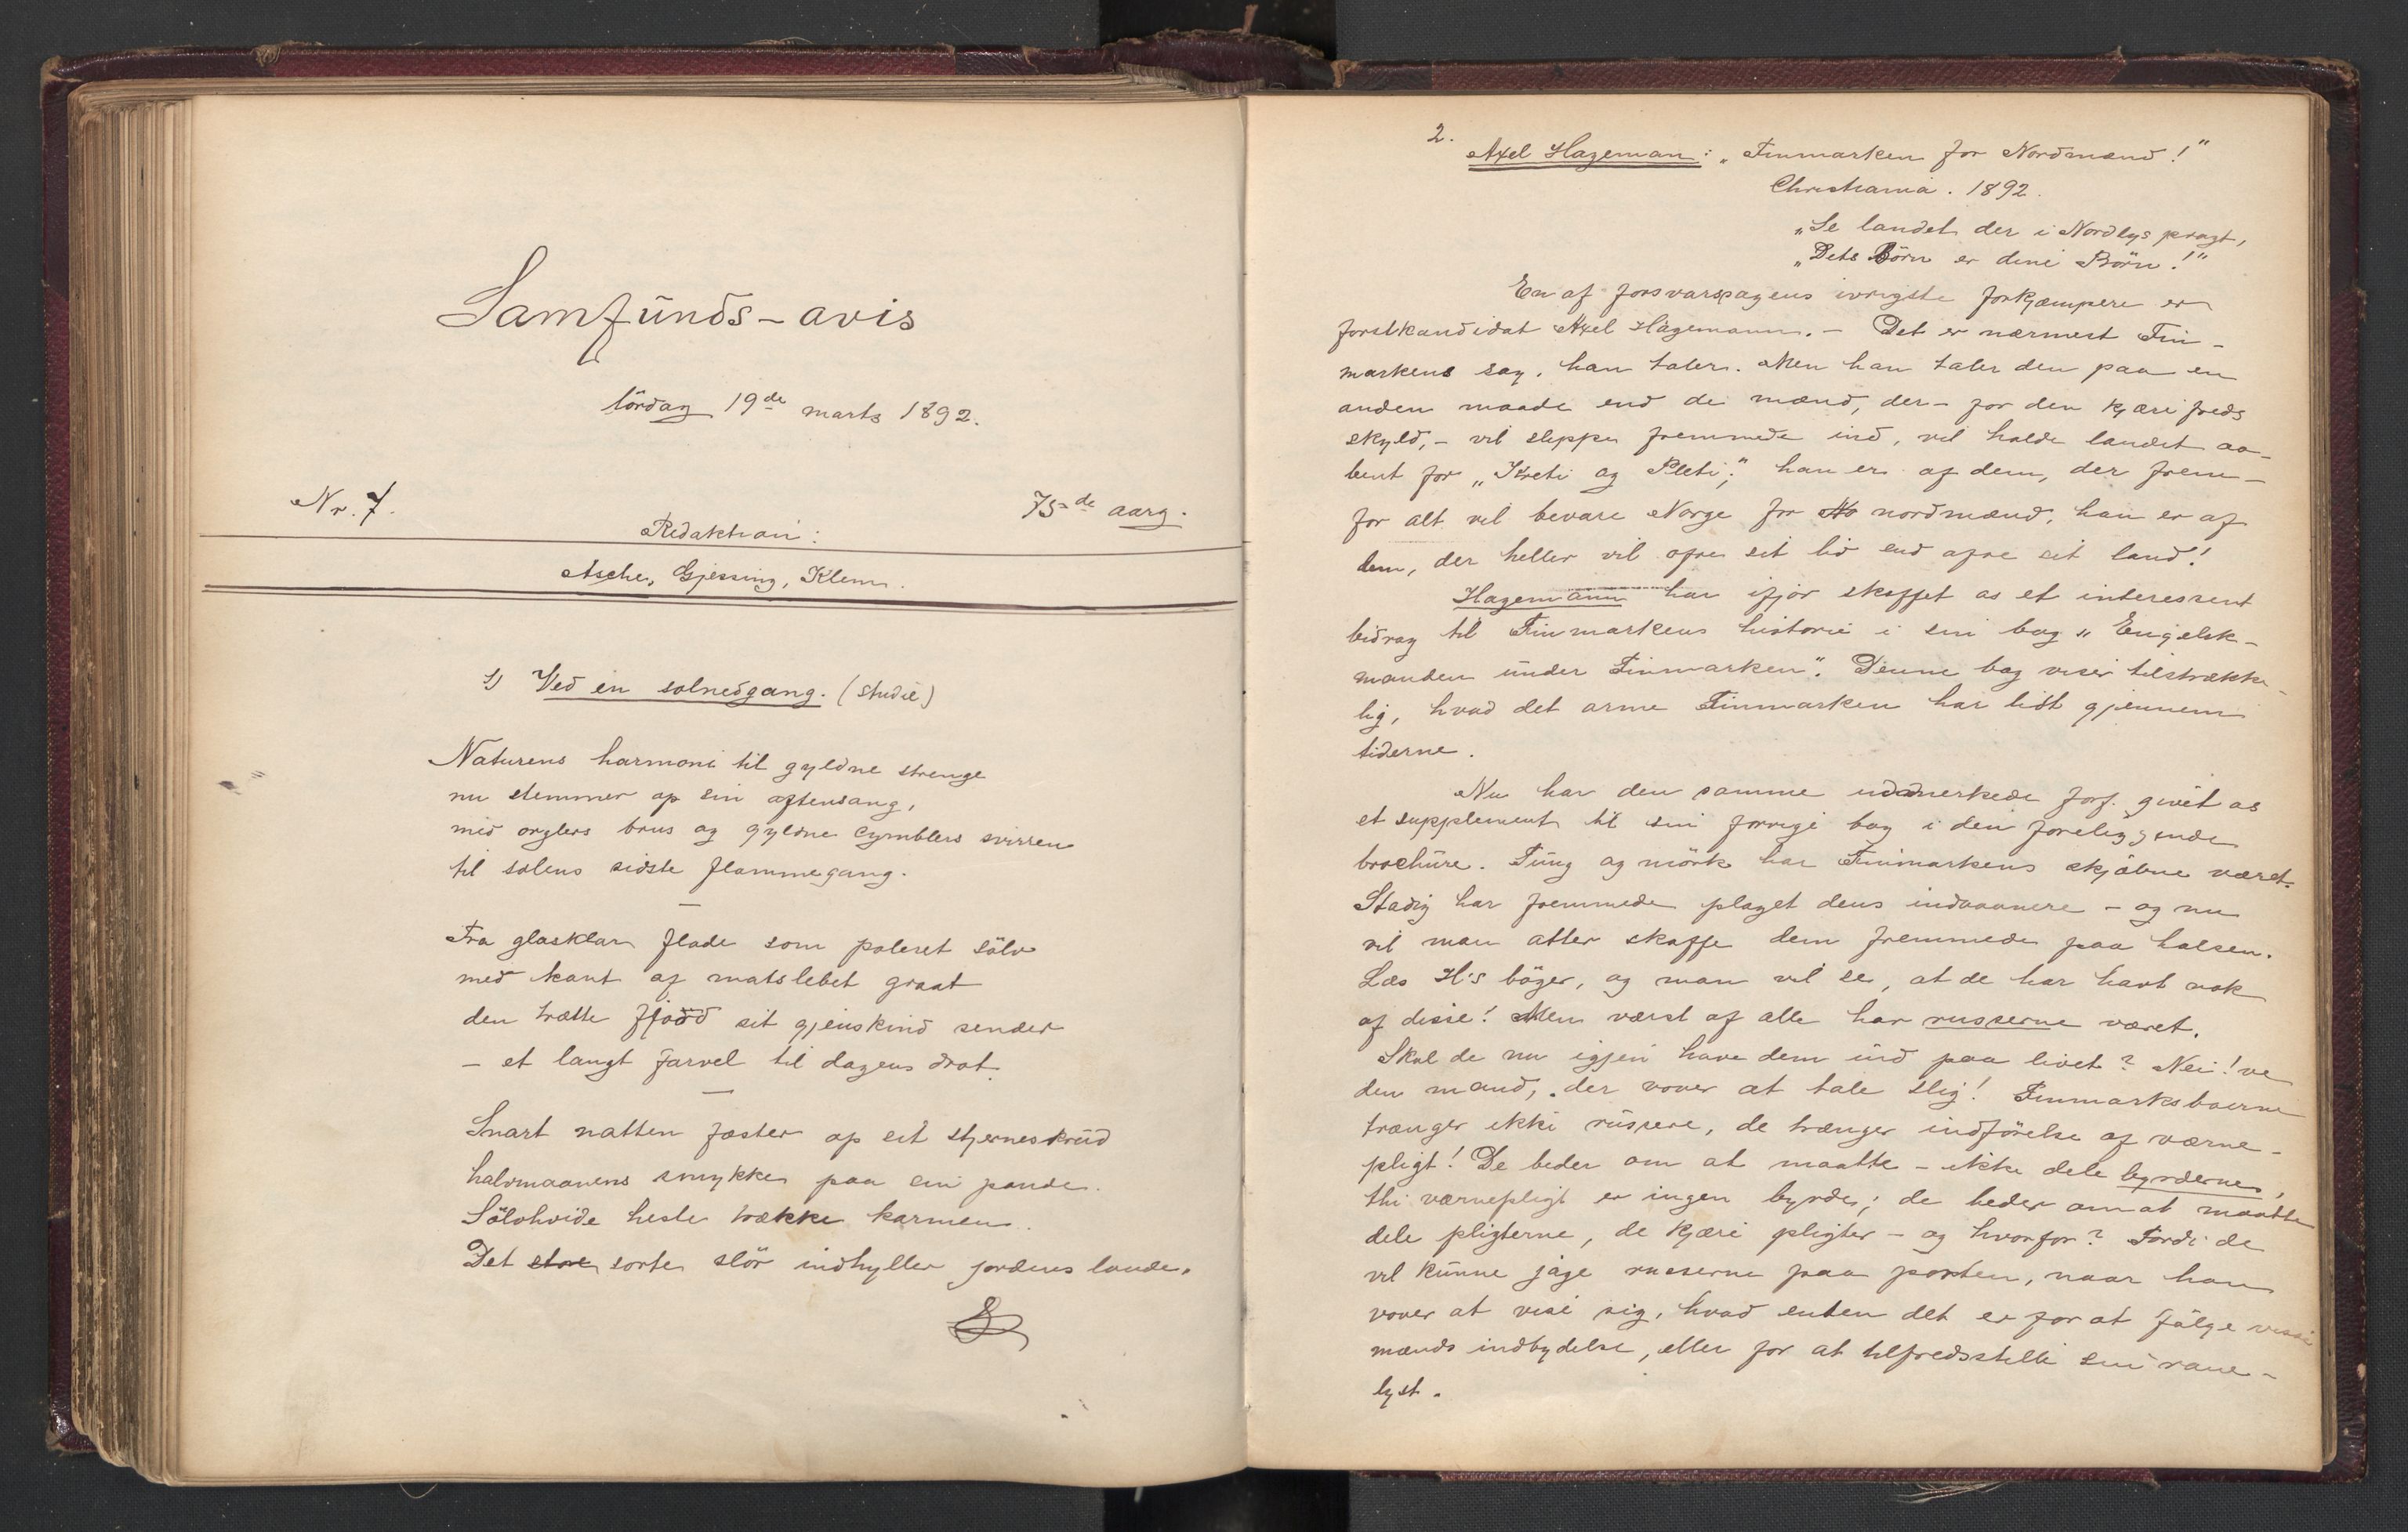 Samfunds-avis
lördag 19de marts 1892.
Nr. 7.
75de aarg.
Redaktion:
Asche, Gjessing, Klem.
1) Ved en solnedgang. (studie)
Naturens harmoni til gyldne strenge
nu stemmer op sin aftensang,
med orglers brus og gyldne cymblers svirren
til solens sidste flammegang.
—
Fra glasklar flade som poleret sölv
med kant af matslebet graat
den trætte fjord sit gjenskin sender
– et langt farvel til dagens drot.
—
Snart natten fæster op sit stjerneskrud
halvmaanens smykke paa sin pande.
Sölvhvide heste trække karmen.
Det store sorte slör indhyller jordens lande.
2.
Axel Hageman: „Finmarken for Nordmænd!"
Christiania. 1892.
„Se landet der i Nordlys pragt,
„Dets Börn er dine Börn!"
En af forsvarssagens ivrigste forkjæmpere er
forstkandidat Axel Hagemann. – Det er nærmest Fin-
markens sag, han taler. Men han taler den paa en
anden maade end de mænd, der – for den kjære freds
skyld, – vil slippe fremmede ind, vil holde landet aa-
bent for „Kreti og Pleti;" han er af dem, der frem-
for alt vil bevare Norge for No nordmænd, han er af
dem, der heller vil ofre sit liv end ofre sit land!
Hagemann har ifjor skaffet os et interessent
bidrag til Finmarkens historie i sin bog „Engelsk-
manden under Finmarken". Denne bog viser tilstrække-
lig, hvad det arme Finmarken har lidt gjennem
tiderne.
Nu har den samme udmerkede forf. givet os
et supplement til sin forrige bog i den foreliggende
brochure. Tung og mörk har Finmarkens skjäbne været.
Stadig har fremmede plaget dens indvaanere – og nu
vil man atter skaffe dem fremmede paa halsen.
Læs H's böger, og man vil se, at de har havt nok
af disse! Men værst af alle har russerne været.
Skal de nu igjen have dem ind paa livet? Nei! ve
den mand, der vover at tale slig! Finmarksboerne
trænger ikke russere, de trænger indförelse af værne-
pligt! De beder om at maatte – ikke dele byrdernes,
thi værnepligt er ingen byrde; de beder om at maatte
dele pligterne, de kjære pligter – og hvorfor? Fordi de
vil kunne jage russerne paa porten, naar han
vover at vise sig, hvad enten det er for at fölge visse
mænds indbydelse, eller for at tilfredsstille sin rane-
lyst.